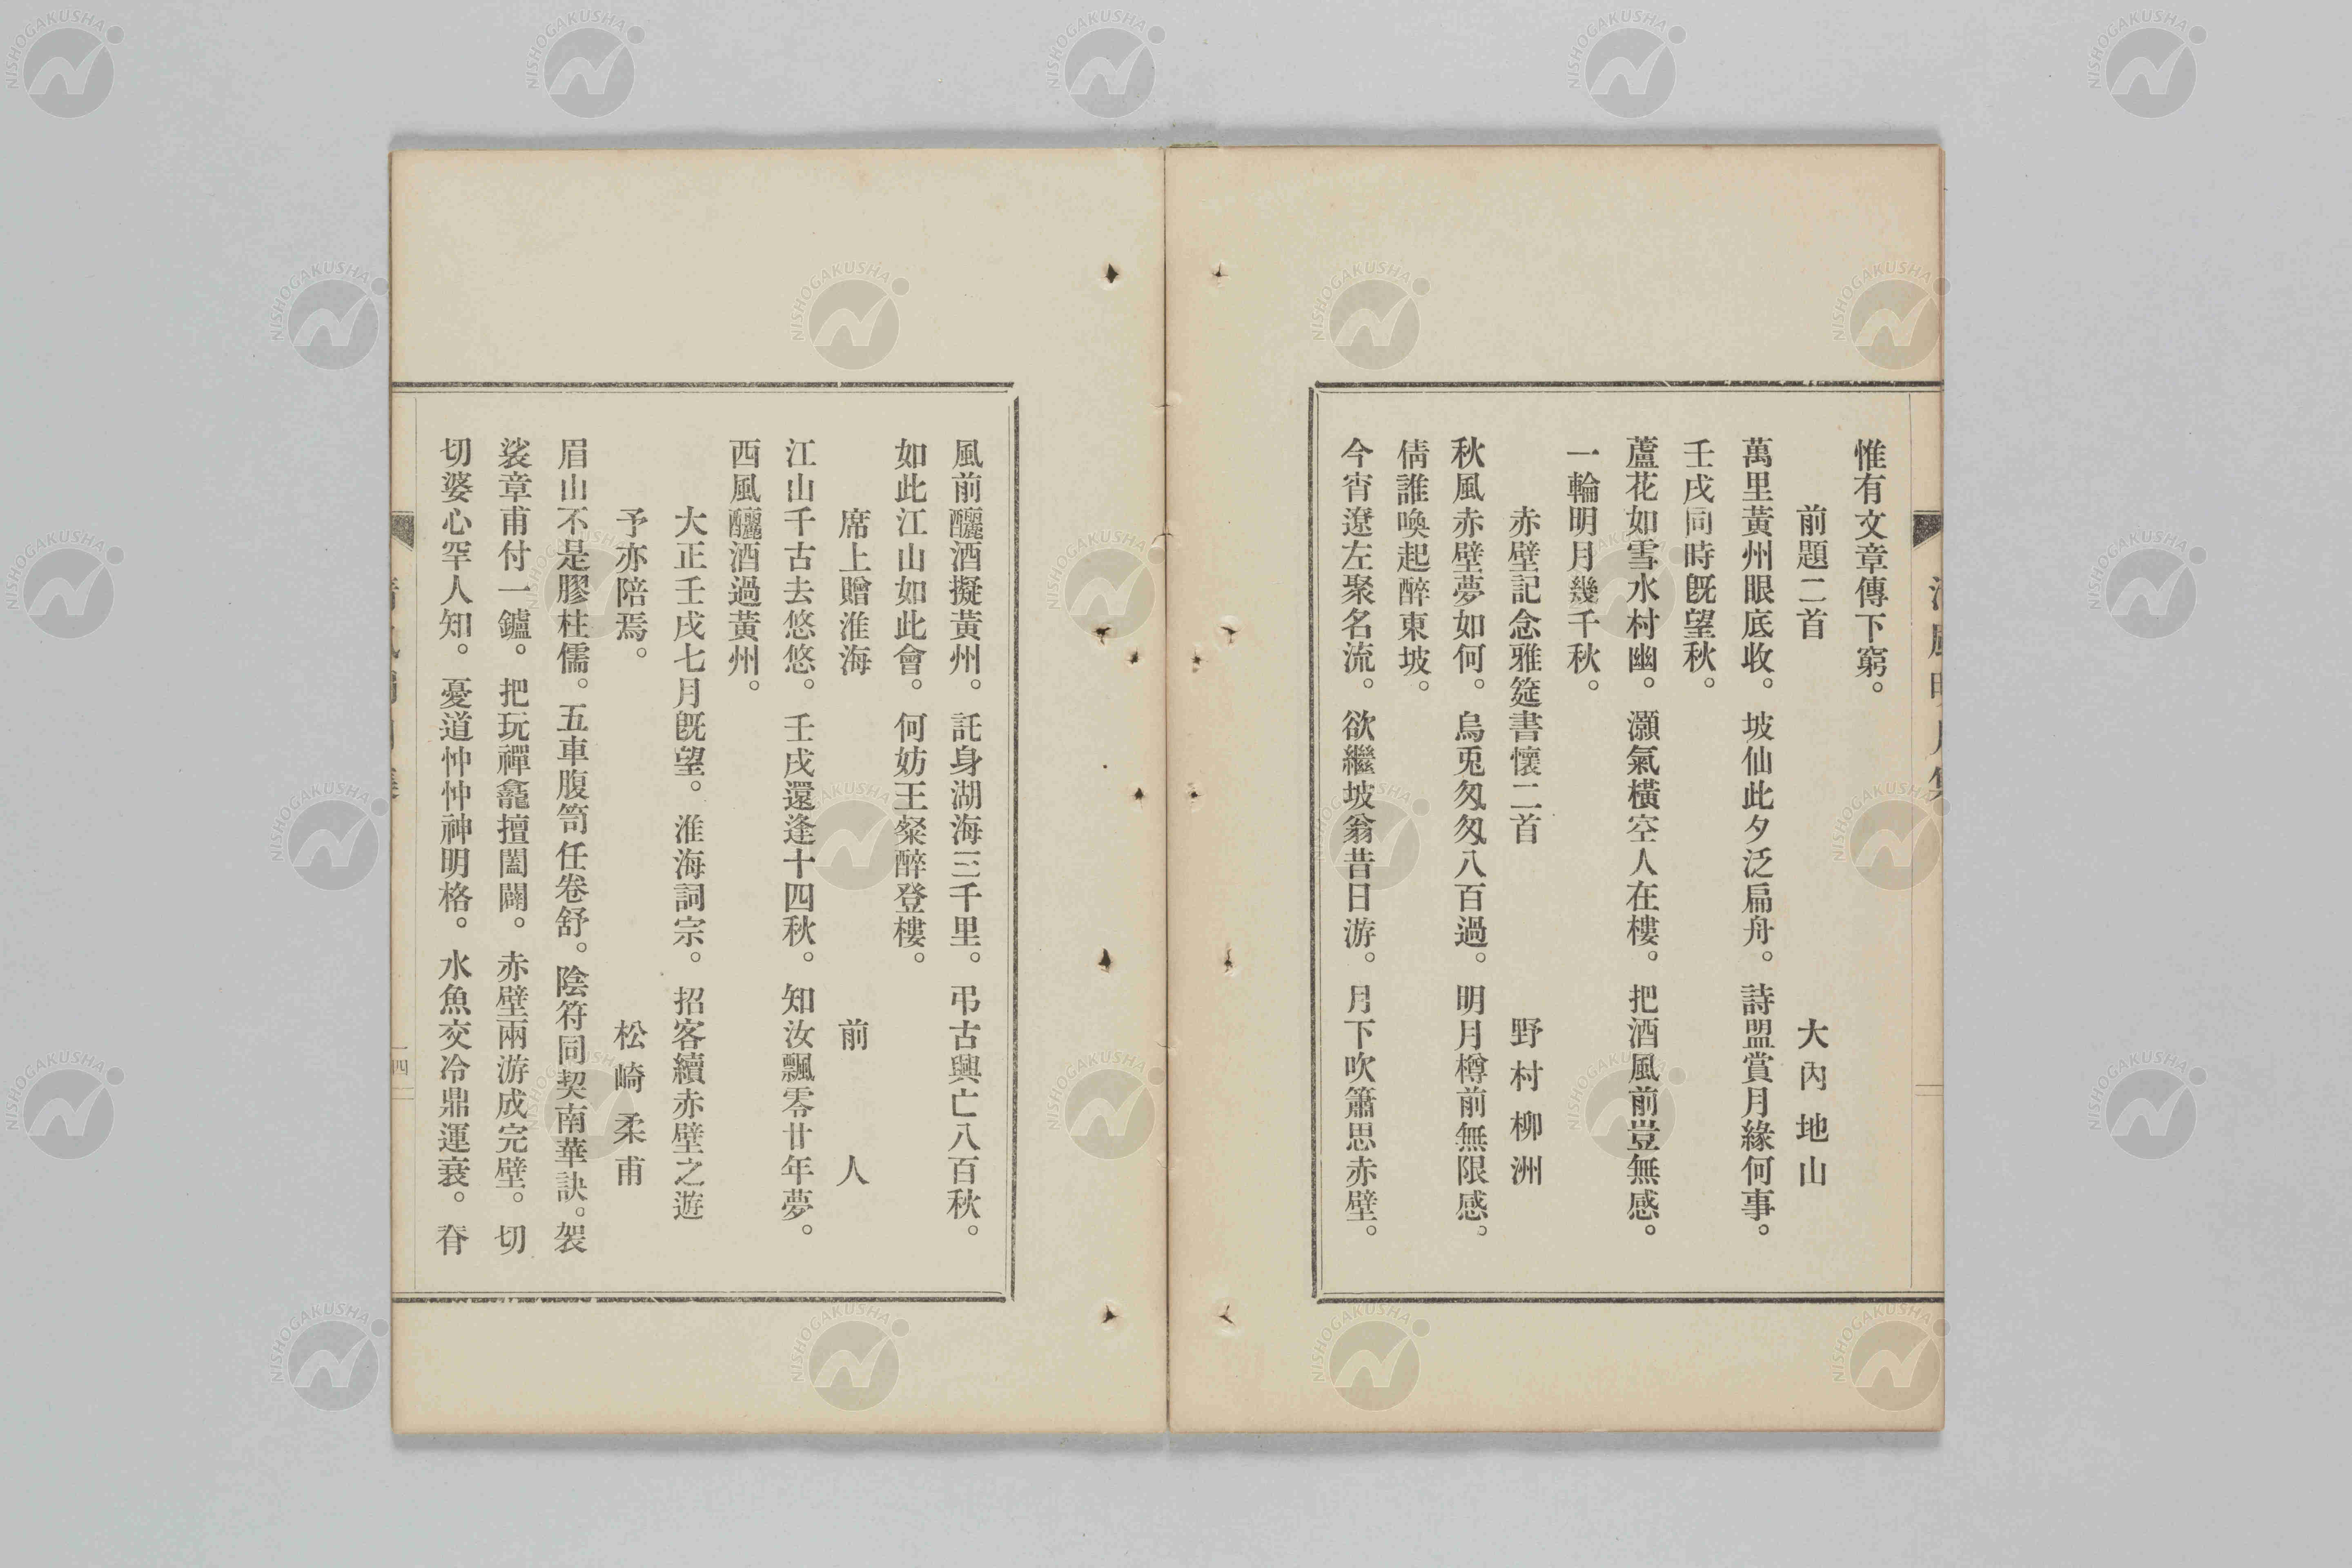 惟有文章傳下窮。
前題二首　大內地山
萬里黃州眼底收。坡仙此夕泛扁舟。詩盟賞月緣何事。
壬戌同時旣望秋。
蘆花如雪水村幽。灝氣橫空人在樓。把酒風前豈無感。
一輪明月幾千秋。
赤壁記念雅筵書懷二首　野村柳洲
秋風赤壁夢如何。烏兎匆匆八百過。明月樽前無限感。
倩誰喚起醉東坡。
今宵遼左聚名流。欲繼坡翁昔日游。月下吹簫思赤壁。
風前釃酒擬黃州。託身湖海三千里。弔古興亡八百秋。
如此江山如此會。何妨王粲醉登樓。
席上贈淮海　前人
江山千古去悠悠。壬戌還逢十四秋。知汝飄零廿年夢。
西風釃酒過黃州。
大正壬戌七月旣望。淮海詞宗。招客續赤壁之遊
予亦陪焉。　松崎柔甫
眉山不是膠柱儒。五車腹笥任卷舒。陰符同契南華訣。袈
裟章甫付一鑪。把玩禪龕擅闔闢。赤壁兩游成完璧。切
切婆心罕人知。憂道忡忡神明格。水魚交冷鼎運衰。眷
四
NISHOGAKUSHA